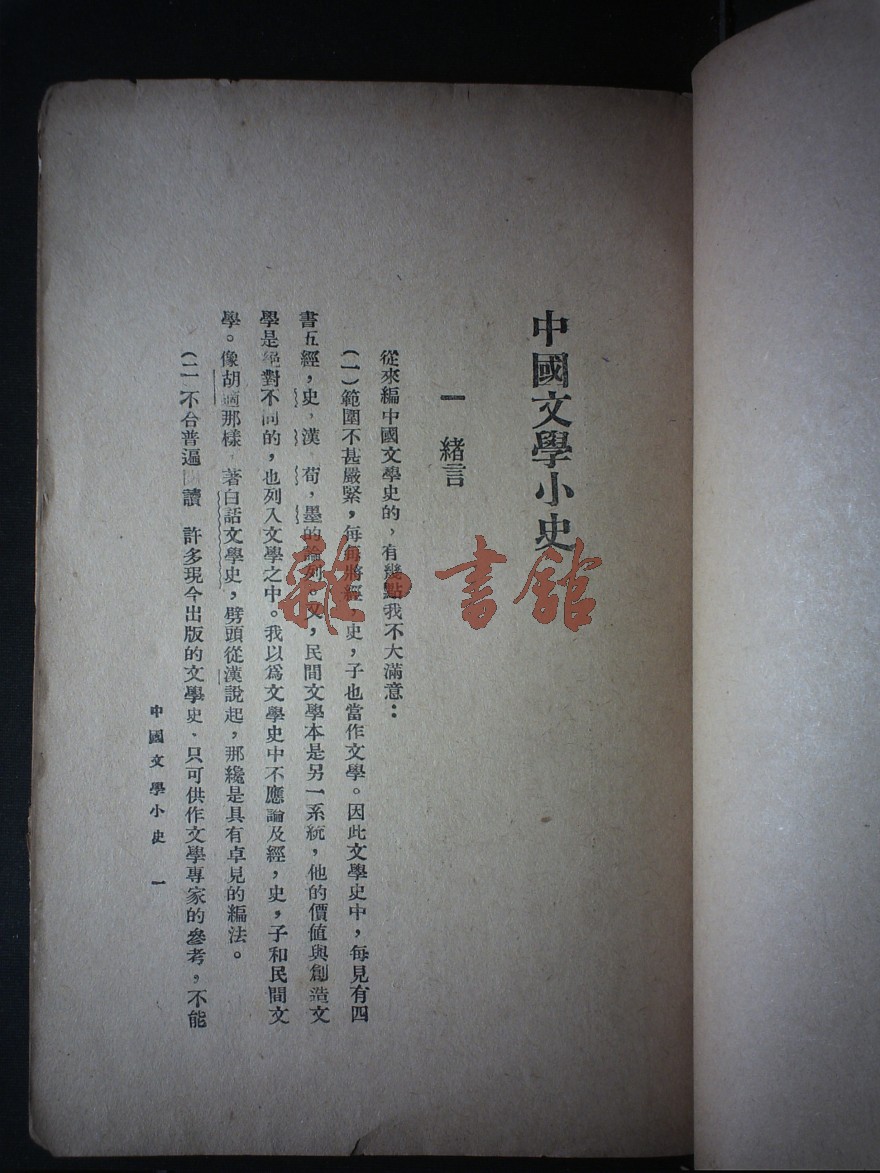 中國文學小史
一 緒言
從來編中國文學史的，有幾點我不大滿意：
（一）範圍不甚嚴緊，每每將經，史，子也當作文學。因此文學史中，每見有四
書五經，史，漢，荀，墨的論列。又，民間文學本是另一系統，他的價値與創造文
學是絕對不同的，也列入文學之中。我以爲文學史中不應論及經，史，子和民間文
學。像胡適那樣，著白話文學史，劈頭從漢說起，那纔是具有卓見的編法。
（二）不合普遍 讀 許多現今出版的文學史、只可供作文學專家的參考，不能
中國文學小史 一
雜·書館